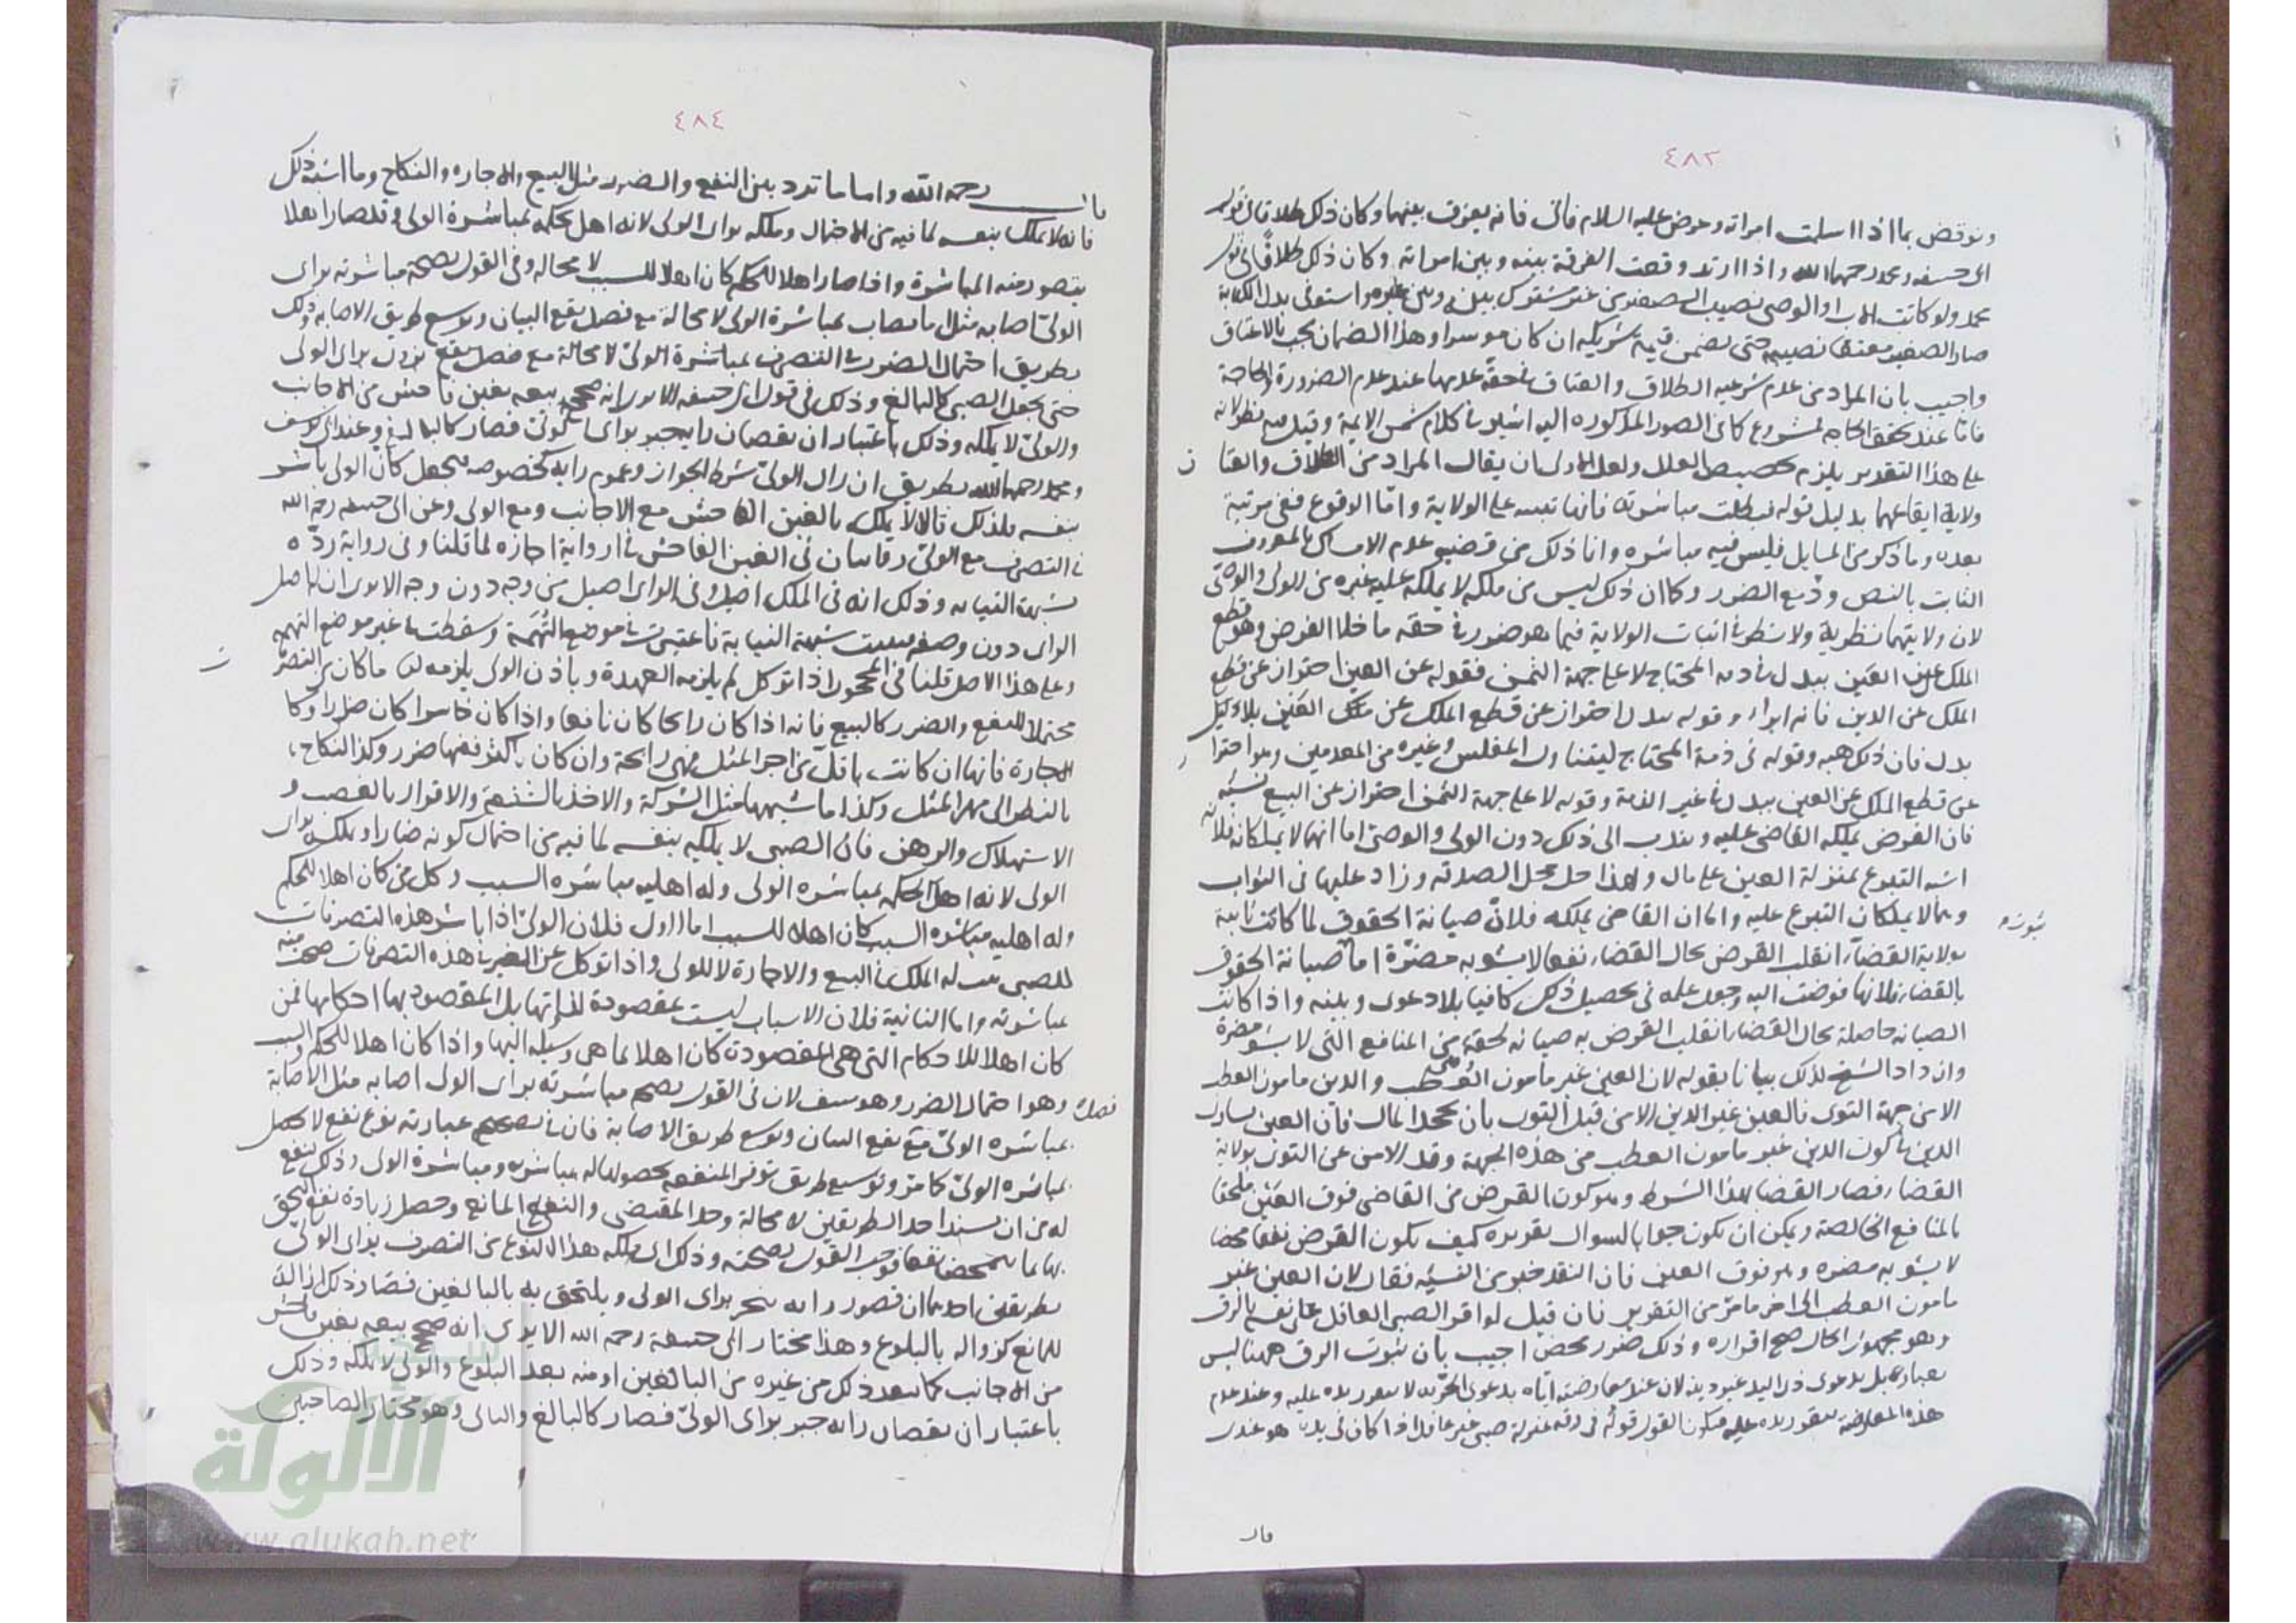 ٤٨٣
ونوقض بما اذا اسلمت امراته وعرض عليه السلام فابى فانه يفرق بينهما وكان ذلك طلاقا في قول
ابى حنيفه ومحمد رحمهما الله واذا ارتد وقعت الفرقة بينه وبين امراته وكان ذلك طلاقا في قول
محمد ولو كاتب الاب او الوصى نصيب الصغير من عبد مشترك بينه وبين غيره واستوفى بدل الكتابة
صار الصغير معتقا نصيبه حتى يضمن قيمة شريكه ان كان موسرا وهذا الضمان يجب بالاعتاق
واجيب بان المراد من عدم شرعية الطلاق والعتاق في حقه عدمها عند عدم الضرورة والحاجة
فاما عند تحقق الحاجه فمشروع كما في الصور المذكوره اليه اشير في كلام شمس الايمة وقيل فيه نظر لانه
على هذا التقدير يلزم تخصيص العلل ولعل الاولى ان يقال المراد من الطلاق والعتا ق
ولاية ايقاعهما بدليل قوله فبطلت مباشرته فانها تبتنى على الولاية واما الوقوع ففى مرتبة
بعده وما ذكر من المسايل فليس فيه مباشره وانما ذلك من قضية عدم الامساك بالمعروف
الثابت بالنص ودفع الضرر وكما ان ذلك ليس من ملكه لا يملكه عليه غيره من الولى والوصى
لان ولايتهما نظرية ولا نظر في اثبات الولاية فيما هو ضرر في حقه ما خلا القرض وهو قطع
الملك عن العين ببدل في ذمه المحتاج لا على جهة الثمن فقوله عن العين احتراز عن قطع
الملك عن الدين فانه ابراء وقوله ببدل احتراز عن قطع الملك عن ملك العين بلا
بدل فان ذلك هبه وقوله في ذمة المحتاج ليتناول المفلس وغيره من المعدمين وهو احترا ز
عن قطع الملك عن العين ببدل في غير الذمة وقوله لا على جهة الثمن احتراز عن البيع نسيه
فان القرض يملكه القاضى عليه ويندب الى ذلك دون الولى والوصى اما انهما لا يملكانه فلانه
اشبه التبرع بمنزلة العين على مال ولهذا حل محل الصدقه وزاد عليها في الثواب
وهما لا يملكان التبرع عليه واما ان القاضى يملكه فلان صيانة الحقوق لما كانت ثابتة
ثبوته
بولاية القضاء انقلب القرض بحال القضاء نفعا لا يشوبه مضرة اما صيانة الحقوق
بالقضاء فلانها فوضت اليه وجعل علمه في تحصيل ذلك كافيا بلا دعوى وبينه واذا كانت
الصيانه حاصلة بحال القضاء انقلب القرض به صيانه لحقه من المنافع التى لا يشوبها مضرة
وازداد الشيخ لذلك بيانا بقوله لان العين غير مامون العطب والدين مامون العطب
الا من جهة التوى فالعين غير الدين الا من قبل التوى بان يجحد المال فان العين يشارك
الدين في كون الدين غير مامون العطب من هذه الجهة وقد الامن عن التوى بولاية
القضاء فصار القضا بهذا الشرط وهو كون القرض من القاضى فوق العين ملحقا
بالمنافع الخالصة ويمكن ان يكون جوابا لسوال تقريره كيف يكون القرض نفعا محضا
لا يشوبه مضره وهو فوق العين فان النقد خير من النسيه فقال لان العين غير
مامون العطب الى اخر ما مر من التقرير فان قيل لو اقر الصبى العاقل على نفسه بالرق
وهو مجهول الحال صح اقراره وذلك ضرر محض اجيب بان ثبوت الرق ههنا ليس
بعبارته بل بدعوى ذى اليد عبوديته لان عند معارضته اياه بدعوى الحرية لا يتقرر يده عليه وعند عدم
هذه المعارضه يتقرر يده عليه فيكون القول قوله في رقه بمنزلة صبى غير عاقل اذا كان في يد من هو عنده
قال
٤٨٤
قال رحمه الله واما ما تردد بين النفع والضرر مثل البيع والاجاره والنكاح وما اشبه ذلك
فانه لا يملك بنفسه لما فيه من الاحتمال ويملكه براى الولى لانه اهل بحكمه بمباشرة الولى وقد صار اهلا
بتصور منه المباشرة واذا صار اهلا للحكم كان اهلا للسبب لا محاله وفى القول بصحة مباشرته براى
الولى اصابه مثل ما يصاب بمباشرة الولى لا محالة مع فضل نفع البيان وتوسع طريق الاصابه وذلك
بطريق احتمال الضرر في التصرف بمباشرة الولى لا محالة مع فضل نفع يزول براى الولى
حتى يجعل الصبى كالبالغ وذلك في قول ابى حنيفه الا يرى انه صحح بيعه بغبن فاحش من الاجانب
والولى لا يملكه وذلك باعتبار ان نقصان رايه جبر براى الولى فصار كالبالغ وعند ابى يوسف
ومحمد رحمهما الله بطريق ان راى الولى شرط الجواز وعموم رايه كخصوصه فيجعل كان الولى باشر
بنفسه فلذلك قالا لا يملك بالغبن الفاحش مع الاجانب ومع الولى وعن ابى حنيفه رحمه الله
في التصرف مع الولى روايتان في الغبن الفاحش في رواية اجازه لما قلنا وفى رواية رده
بشبهة النيابه وذلك انه في الملك اصيل وفى الراى اصيل من وجه دون وجه الا يرى ان له اصل
الراى دون وصفه فثبتت شبهة النيابة فاعتبرت في موضع التهمة وسقطت في غير موضع التهمه
وعلى هذا الاصل قلنا في المحجور اذا توكل لم يلزمه العهدة وباذن الولى يلزمه اى ما كان من التصر ف
محتملا للنفع والضرر كالبيع فانه اذا كان رابحا كان نافعا واذا كان خاسرا كان ضررا وكا
لاجارة فانها ان كانت باقل من اجر المثل فهى رابحة وان كان باكثر ففيها ضرر وكذا النكاح
بالنظر الى مهر المثل وكذا ما شبهها مثل الشركة والاخذ بالشفعة والاقرار بالغصب و
الاستهلاك والرهن فان الصبى لا يملكه بنفسه لما فيه من احتمال كونه ضارا ويملكه براى
الولى لانه اهل لحكمه بمباشره الولى وله اهلية مباشره السبب وكل من كان اهلا للحكم
وله اهليه مباشره السبب كان اهلا للسبب اما الاول فلان الولى اذا باشر هذه التصرفات
للصبى يثبت له الملك في البيع والاجارة لا للولى واذا توكل عن الغير في هذه التصرفات صحت منه
مباشرته واما الثانية فلان الاسباب ليست بمقصودة لذاتها بل المقصود بها احكامها فمن
كان اهلا للاحكام التى هى المقصودة كان اهلا لما هى وسيله اليها واذا كان اهلا للحكم والسبب
وهو احتمال الضرر وهو منتف لان في القول بصحة مباشرته براى الولى اصابه مثل الاصابة
فصل
بمباشره الولى مع نفع البيان وتوسع طريق الاصابة فان في تصحيح عبارته نوع نفع لا يحصل
بمباشره الولى كما مر وتوسيع طريق توفر المنفعه بحصولها له بمباشرته ومباشرة الولى وذلك انفع
له من ان يسند احد الطريقين لا محالة وجد المقتضى وانتفى المانع وحصل زيادة نفع التحق
بها بما يتمحض نفعا فوجب القول بصحته وذلك اى يملكه هذا النوع من التصرف براى الولى
بطريقين احدهما ان قصور رايه ينجبر براى الولى ويلتحق به بالبالغين فصار ذلك ازالة
للمانع كزواله بالبلوغ وهذا مختار ابى حنيفة رحمه الله الا يرى انه صحح بيعه بغبن فاحش
من الاجانب كما ينفذ ذلك من غيره من البالغين او منه بعد البلوغ والولى لا يملكه وذلك
باعتبار ان نقصان رايه جبر براى الولى فصار كالبالغ والثانى وهو مختار الصاحبين
الألوكة
www.alukah.net